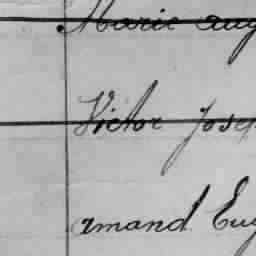 Marie Aug
Victor Josep
Armand Eug